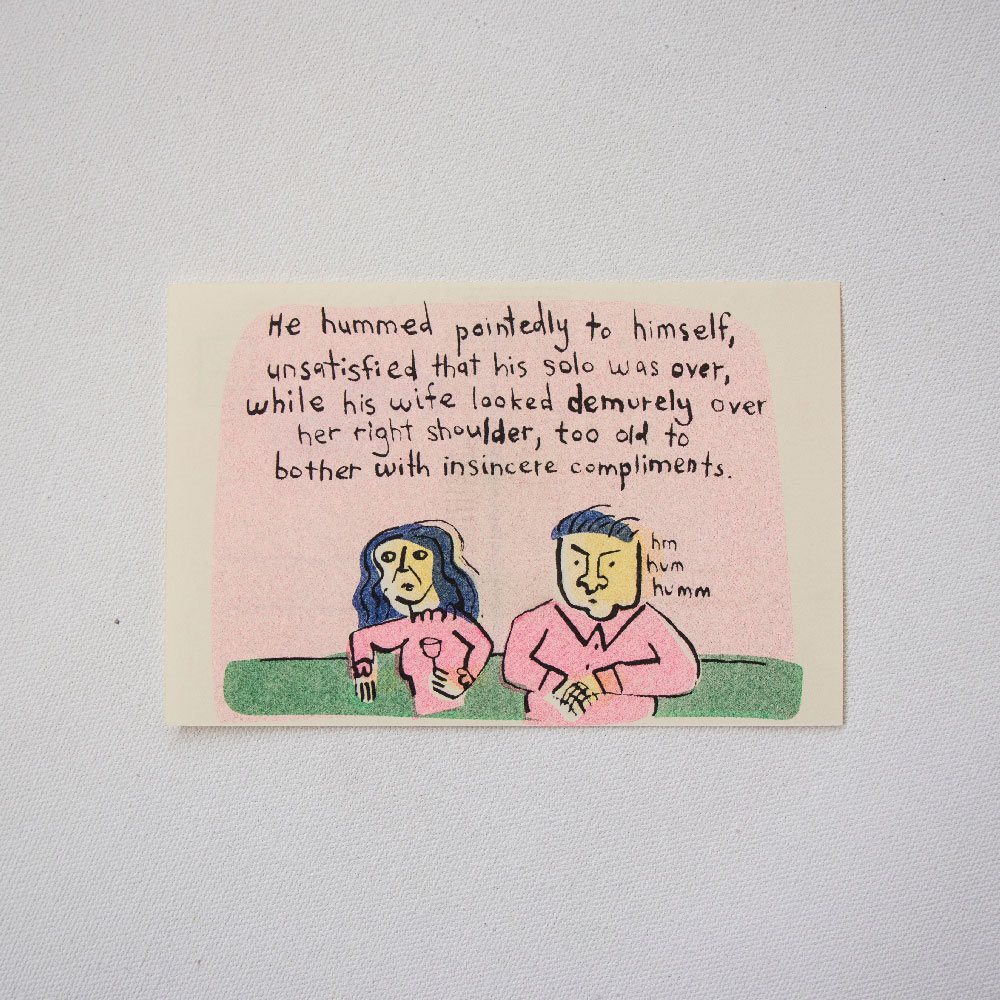 He hummed pointedly to himself,
unsatisfied that his solo was over,
while his wife looked demurely over
her right shoulder, too old to
bother with insincere compliments.
hm
hum
humm